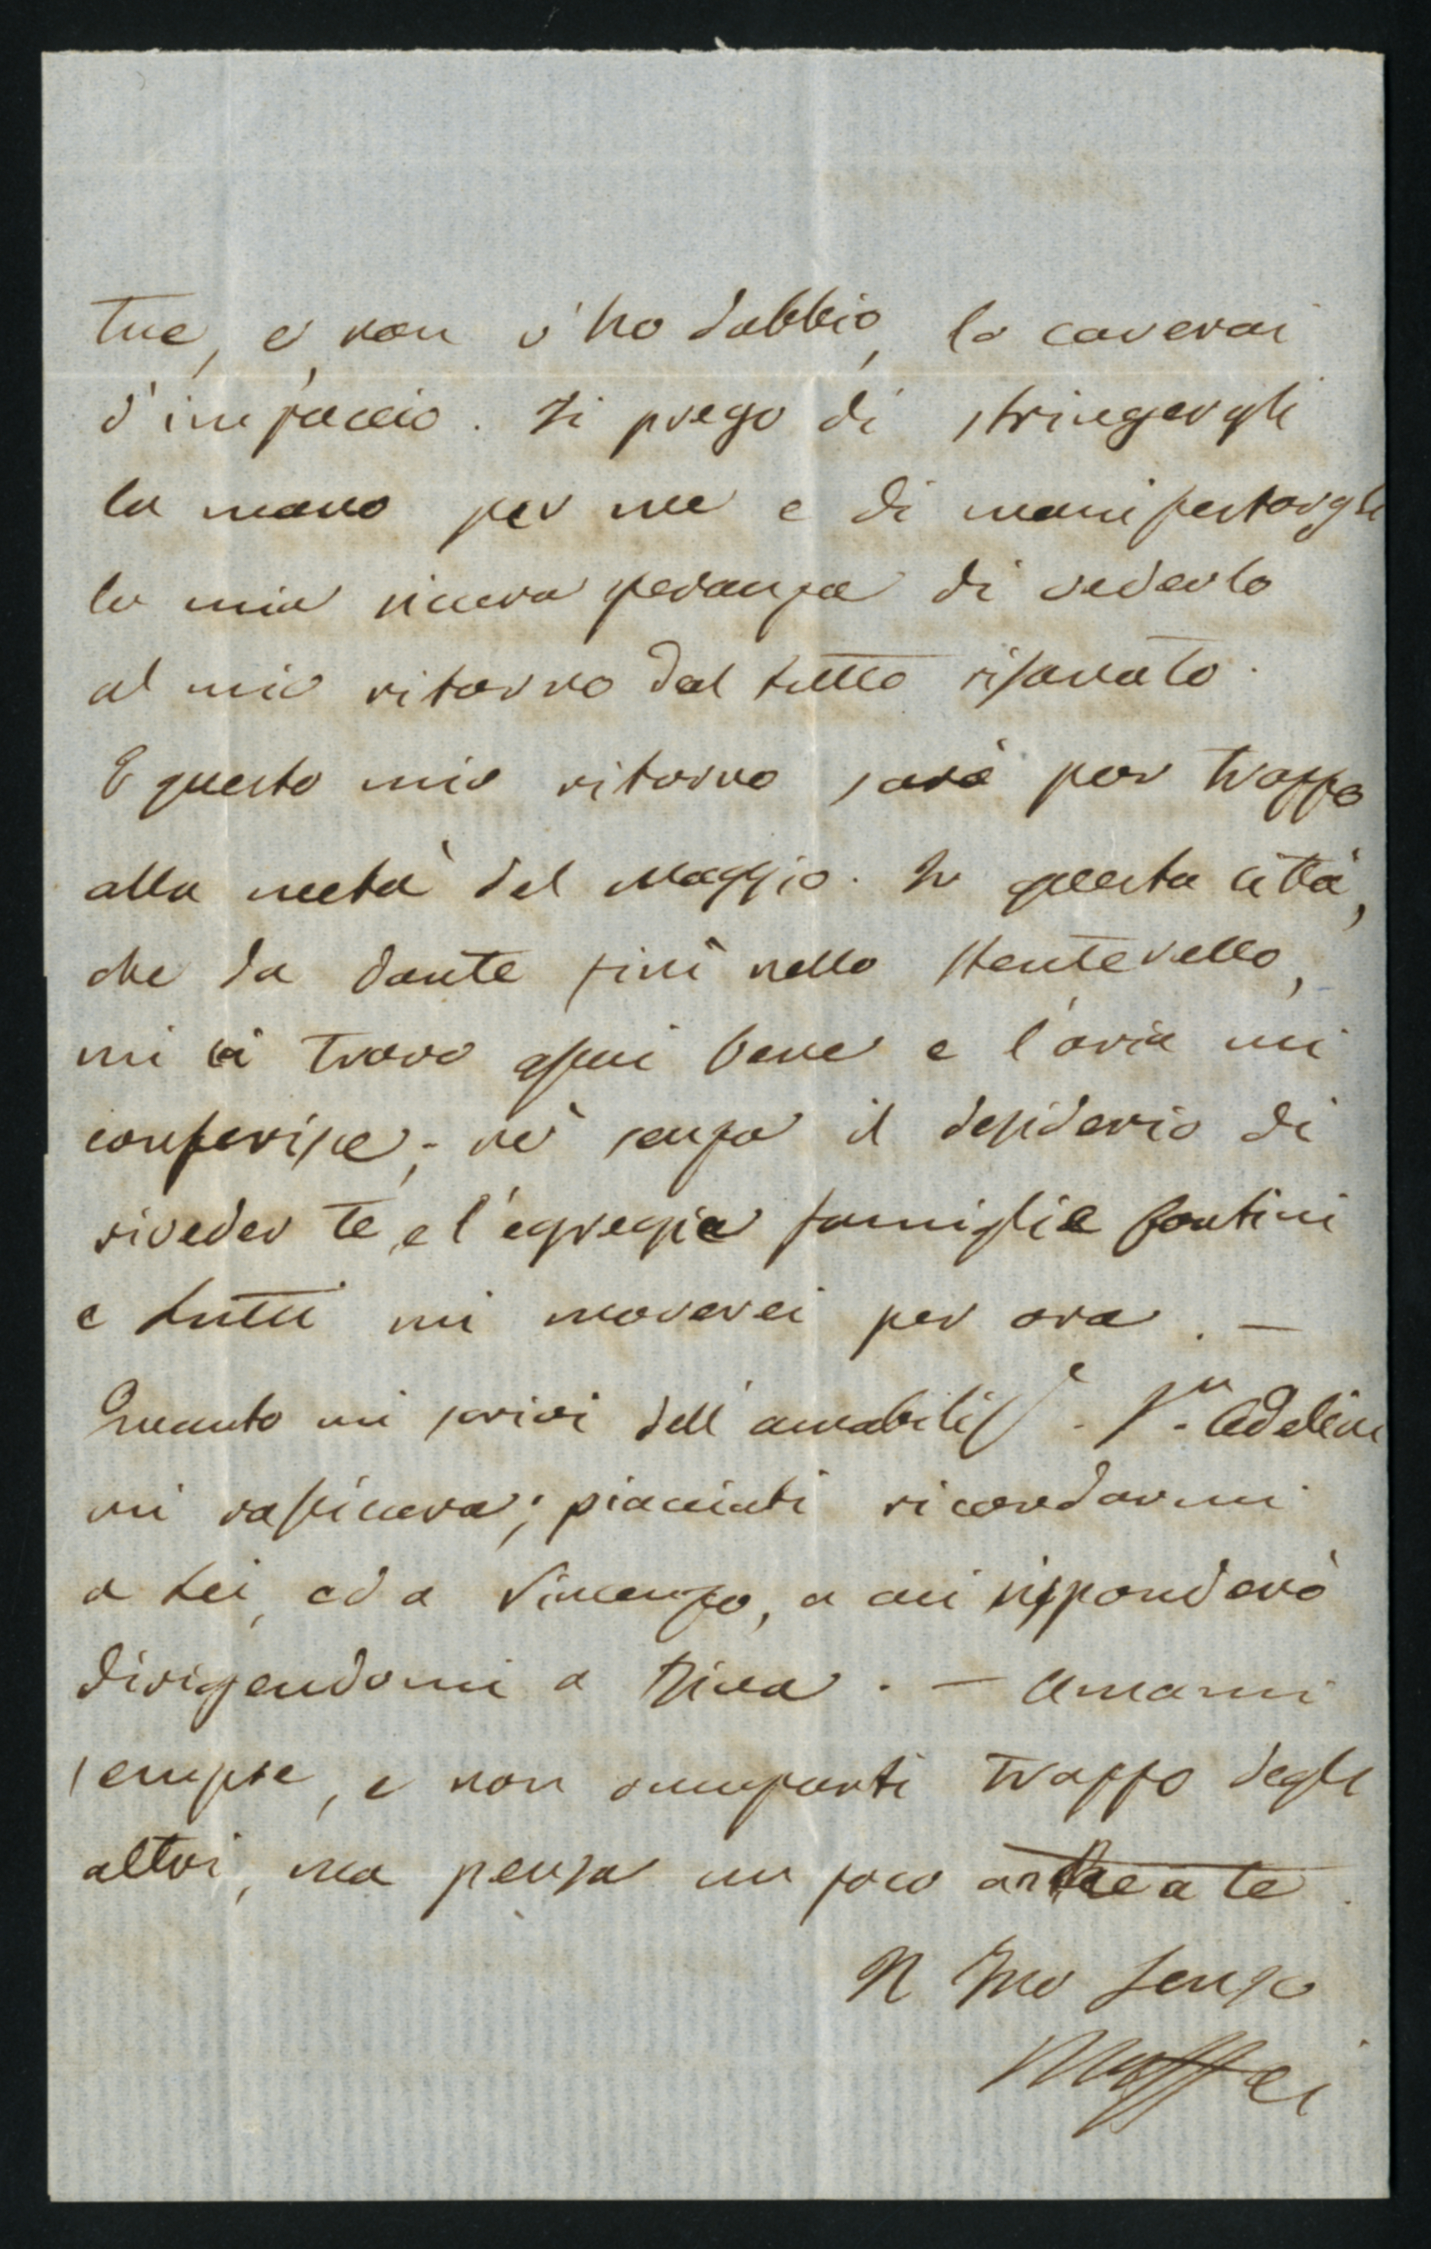 tue, e, non v'ho dubbio, lo caverai
d'impaccio. Ti prego di stringergli
la mano per me e di manifestargli
la mia sincera speranza di vederlo
al mio ritorno del tutto risanato.
E questo mio ritorno sarà pur troppo
alla metà del Maggio. In questa città,
che da Dante finì nello Stenterello,
mi ci trovo assai bene e l'aria mi
conferisce; nè senza il desiderio di
riveder te, e l'egregia famiglia Fontini
e tutti mi moverei per ora. —
Quanto mi scrivi dell'amabiliss.e S.ra Adelin
mi rassicura; piacciati ricordarmi
a lei, ed a Vincenzo, a cui risponderò
dirigendomi a Riva. — Amami
sempre, e non occuparti troppo degli
altri, ma pensa un poco anche a te.
Il Tuo
Maffei